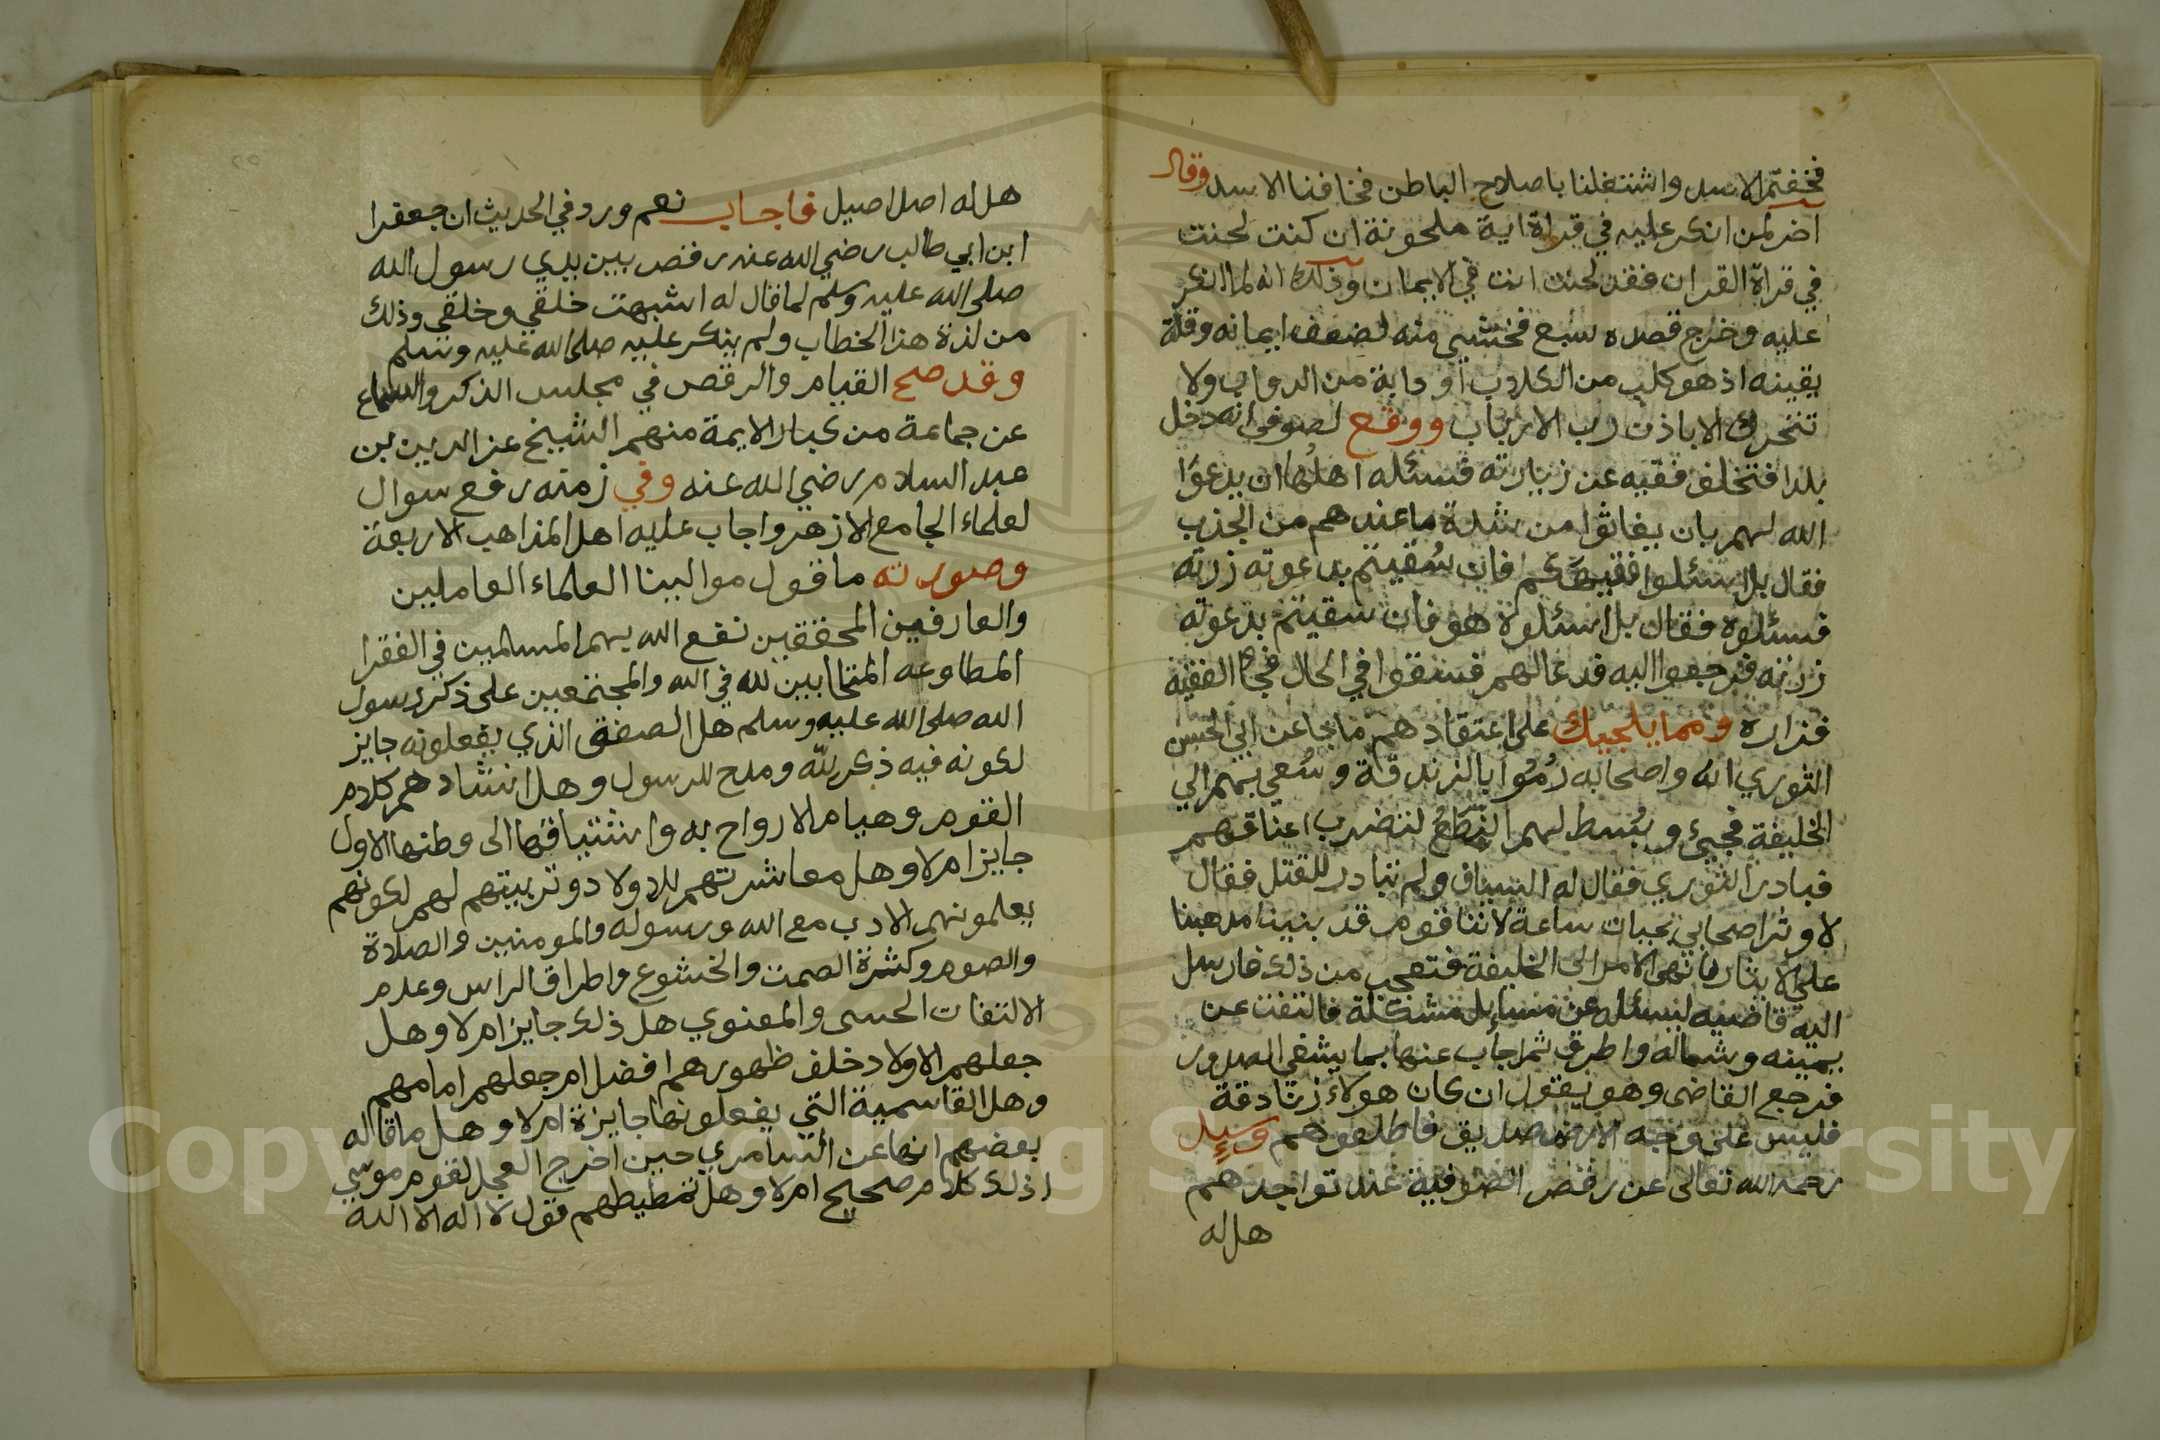 فخفتم الاسد واشتغلنا باصلاح الباطن فخافنا الاسد وقال
اخر لمن انكر عليه في قراة اية ملحونة ان كنت لحنت
في قراة القران فقد لحنت انت في الايمان وذلك انه لما انكر
عليه وخرج قصده سبع فخشي منه لضعف ايمانه وقلة
يقينه اذ هو كلب من الكلاب او دابة من الدواب ولا
تتحرك الا باذن رب الارباب ووقع لصوفي انه دخل
بلدا فتخلف فقيه عن زيارته فسئله اهلها ان يدعوا
الله لهم بان يغاثوا من شدة ما عندهم من الجدب
فقال بل اسئلوا فقيهكم فان سُقيتم بدعوته زرته
فسئلوه فقال بل اسئلوه هو فان سقيتم بدعوته
زرته فرجعوا اليه فدعا لهم فسقوا في الحال فجا الفقيه
فزاره ومما يلجيك على اعتقادهم ما جا عن ابي الحسن
الثوري انه واصحابه رُمُوا بالزندقة وسُعي بهم الي
الخليفة فجيئ وبُسط لهم النطع لتضرب اعناقهم
فبادر الثوري فقال له السياف ولم تبادر للقتل فقال
لاوثر اصحابي بحيات ساعة لاننا قوم قد بنينا مذهبنا
علي الايثار فانهي الامر الى الخليفة فتعجب من ذلك فارسل
اليه قاضيه ليسئله عن مسايل مشكلة فالتفت عن
يمينه وشماله واطرق ثم اجاب عنها بما يشفي الصدور
فرجع القاضي وهو يقول ان كان هولاء زنادقة
فليس على وجه الارض صديق فاطلقوهم وسيل
رحمه الله تعالى عن رقص الصوفية عند تواجدهم
هل له
هل له اصل اصيل فاجاب نعم ورد في الحديث ان جعفرا
ابن ابي طالب رضي الله عنه رقص بين يدي رسول الله
صلى الله عليه وسلم لما قال له اشبهت خلقي وخلقي وذلك
من لذة هذا الخطاب ولم ينكر عليه صلى الله عليه وسلم
وقد صح القيام والرقص في مجلس الذكر والسماع
عن جماعة من كبار الايمة منهم الشيخ عز الدين بن
عبد السلام رضي الله عنه وفي زمنه رفع سوال
لعلماء الجامع الازهر واجاب عليه اهل المذاهب الاربعة
وصورته ما قول موالينا العلماء العاملين
والعارفين المحققين نفع الله بهم المسلمين في الفقرا
المطاوعه المتحابين لله في الله والمجتمعين على ذكر رسول
الله صلى الله عليه وسلم هل الصفق الذي يفعلونه جايز
لكونه فيه ذكر لله ومدح للرسول وهل انشادهم كلام
القوم وهيام الارواح به واشتياقها الى وطنها الاول
جايز ام لا وهل معاشرتهم للاولاد وتربيتهم لهم لكونهم
يعلمونهم الادب مع الله ورسوله والمومنين والصلاة
والصوم وكثرة الصمت والخشوع واطراق الراس وعدم
الالتفات الحسى والمعنوي هل ذلك جايز ام لا وهل
جعلهم الاولاد خلف ظهورهم افضل ام جعلهم امامهم
وهل القاسمية التي يفعلونها جايزة ام لا وهل ما قاله
بعضهم انها عن السامري حين اخرج العجل لقوم موسي
اذلك كلام صحيح ام لا وهل تمطيطهم قول لا اله الا الله
Copyright © King Saud University